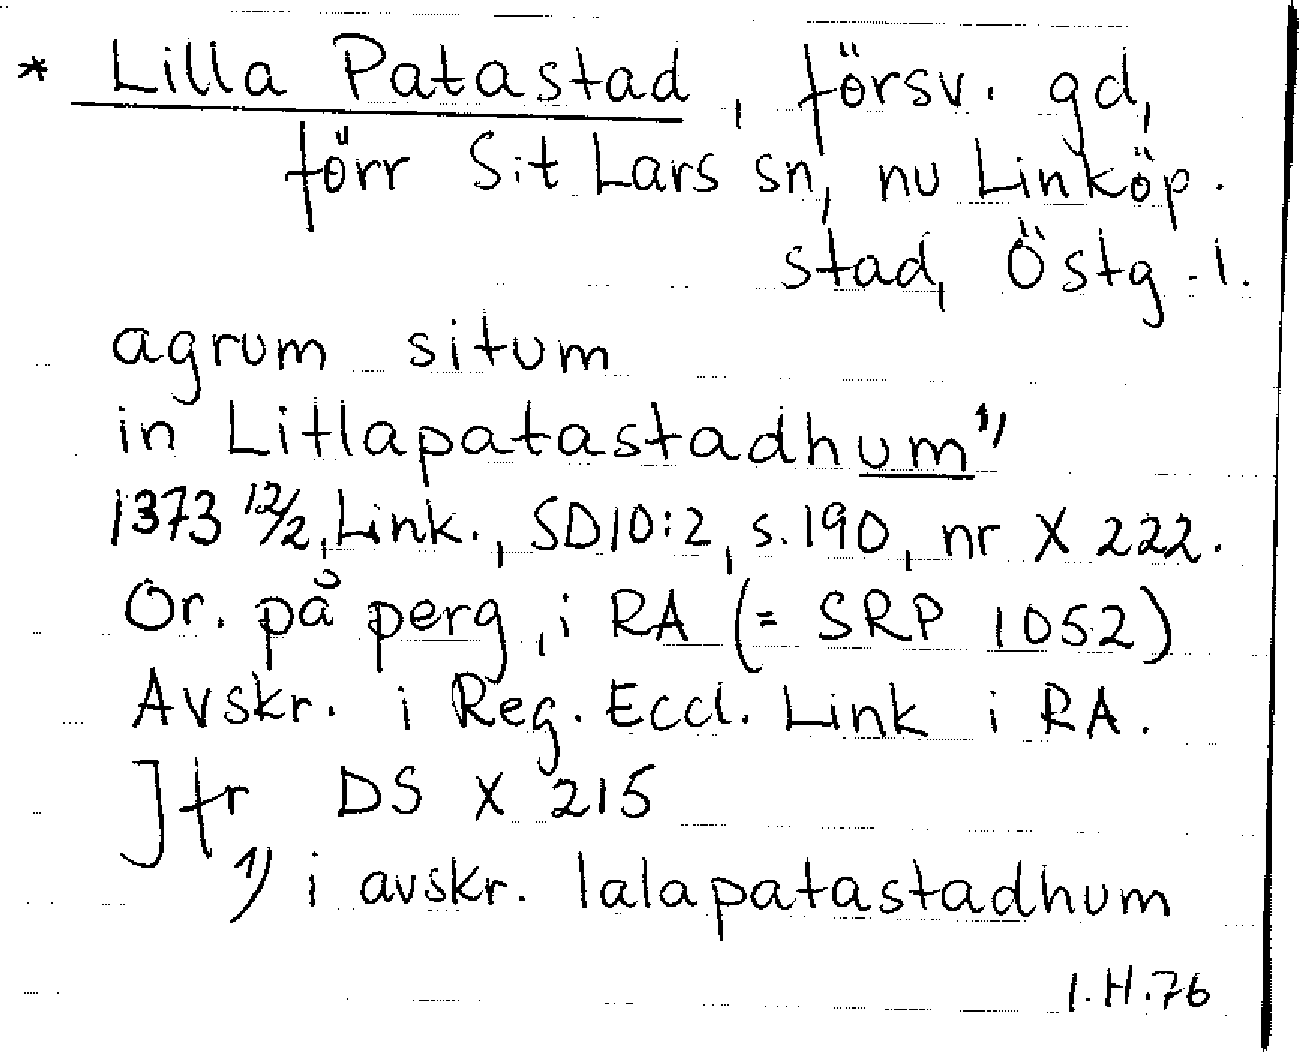 * Lilla Patastad, försv. gd,
förr S:t Lars sn, nu Linköp.
stad, Östg. l.
agrum situm
in Litlapatastadhum 1)
1373 12/2, Link., SD10:2, s. 190, nr X 222.
Or. på perg, i RA (= SRP 1052)
Avskr. i Reg. Eccl. Link i RA.
Jfr DS X 215
1) i avskr. lalapatastadhum
I.H.76